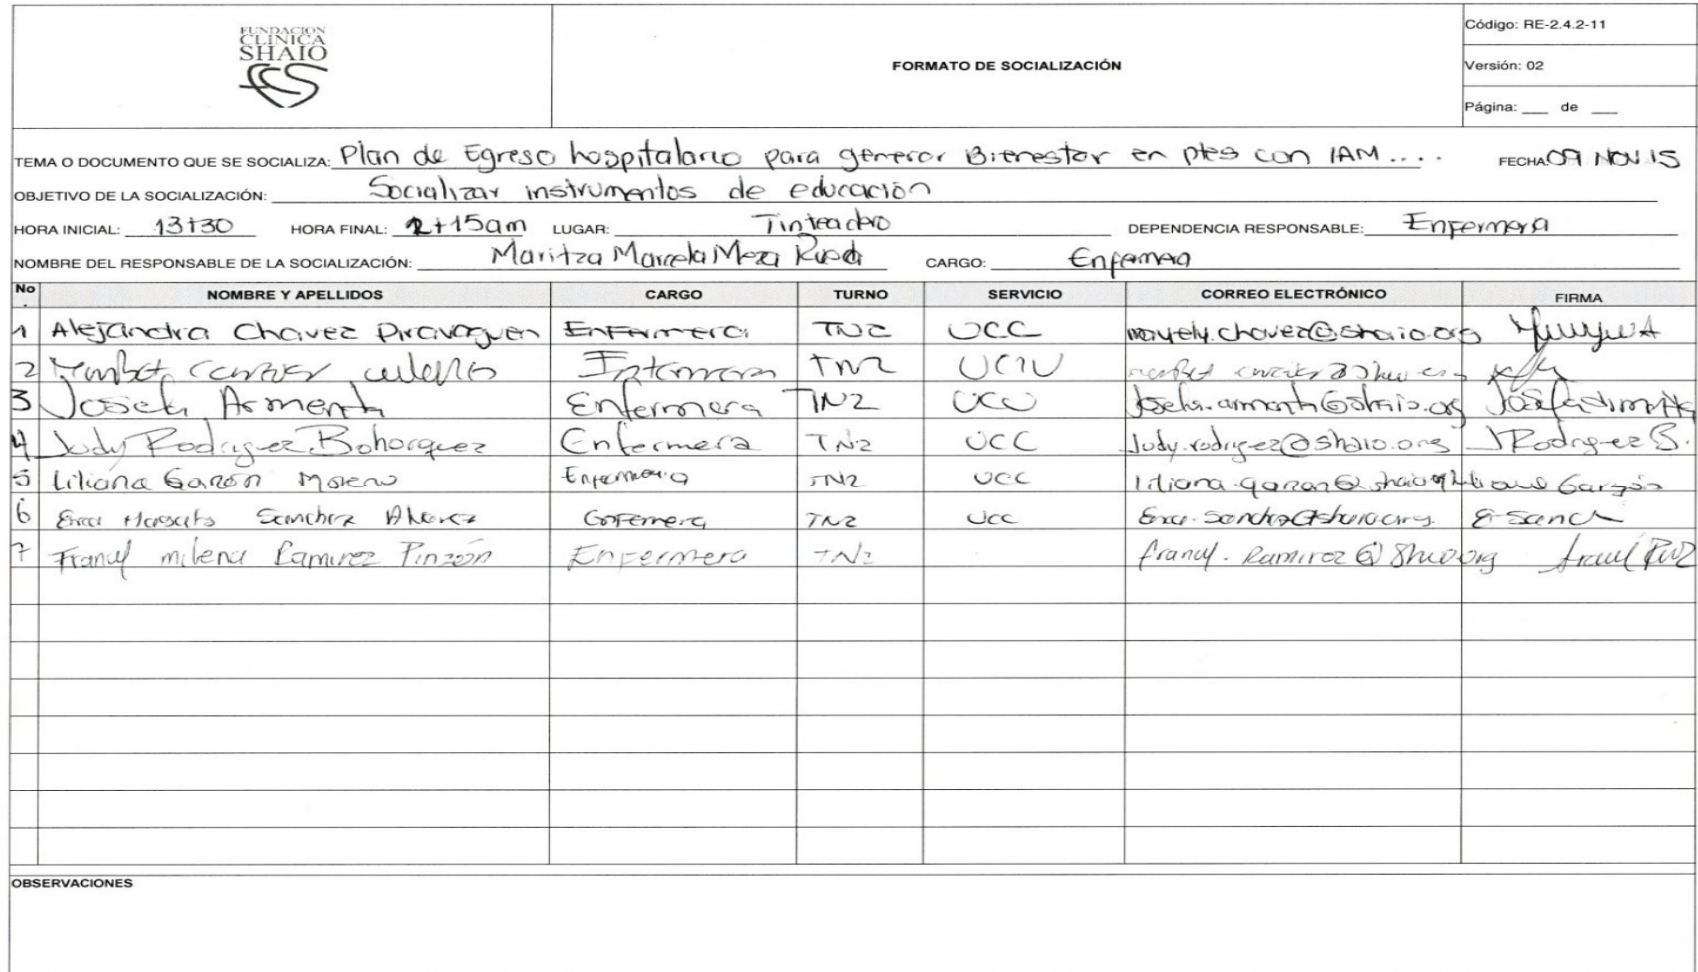 FUNDACION
CLINICA
SHAIO
FORMATO DE SOCIALIZACIÓN
Código: RE-2.4.2-11
Versión: 02
Página: ___ de ___
TEMA O DOCUMENTO QUE SE SOCIALIZA: Plan de Egreso hospitalario para generar Bienestar en ptes con IAM.... FECHA: 09 NOV. 15
OBJETIVO DE LA SOCIALIZACIÓN: Socializar instrumentos de educación
HORA INICIAL: 13+30 HORA FINAL: 2+15am LUGAR: DEPENDENCIA RESPONSABLE: Enfermería
NOMBRE DEL RESPONSABLE DE LA SOCIALIZACIÓN: Maritza Marcela Meza CARGO: Enfermera
No. NOMBRE Y APELLIDOS CARGO TURNO SERVICIO CORREO ELECTRÓNICO FIRMA
1 Alejandra Chavez Enfermera TN2 UCC mayely.chavez@shaio.org
2 Enfermera TN2
3 Josefa Armenta Enfermera TN2 josefa.armenta@shaio.org Josefa Armenta
4 Judy Rodriguez Bohorquez Enfermera TN2 UCC Judy.rodrigez@shaio.org JRodriguez B.
5 Liliana Garzón Moreno Enfermera TN2 UCC liliana.garzon@shaio.org Liliana Garzón
6 Sanchez Enfermera TN2 UCC
7 Francy milena Ramirez Pinzón Enfermera TN2 francy.Ramirez@Shaio.org
OBSERVACIONES